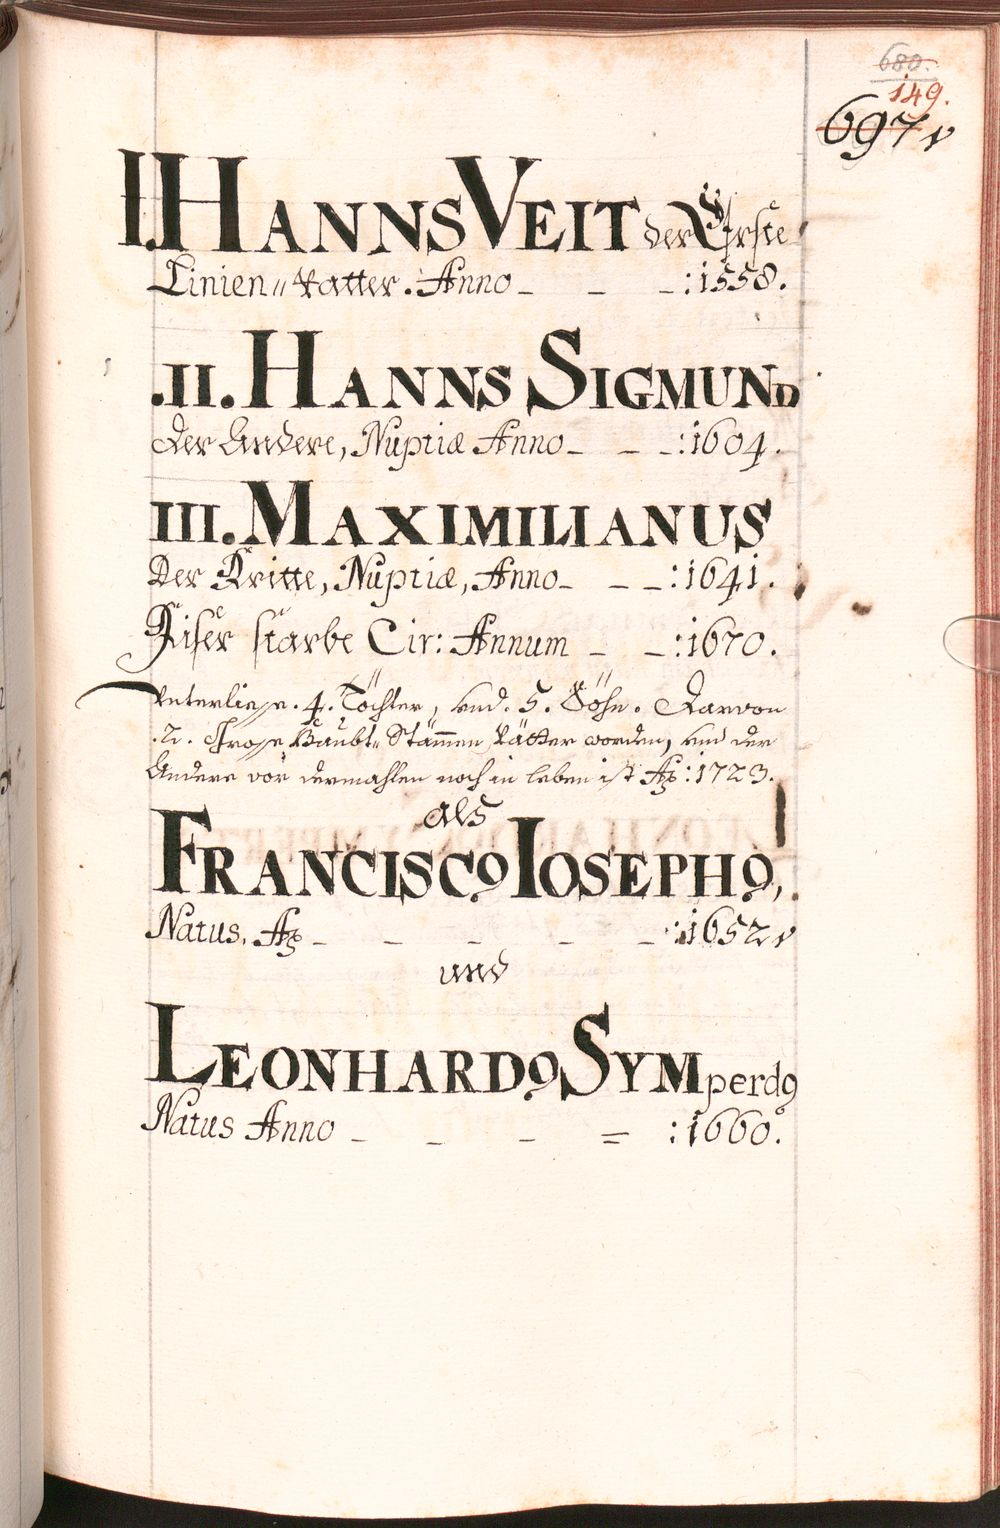 680.
149.
697
I. HANNS VEIT der Erste
Linien Vatter. Anno – – –: 1558.
.II. HANNS SIGMUND
der Andere, Nuptiæ Anno – – –: 1604.
III. MAXIMILIANUS
Der Dritte, Nuptiæ, Anno – – –: 1641.
Diser starbe Cir: Annum – –: 1670.
Unterliesse. 4. Töchter, und. 5. Söhn. Darvon
.2. Grose Haubt Stämmen Vätter worden, und der
Andere vor dermahlen noch in leben ist Aō: 1723.
als
FRANCISCO IOSEPHO,
Natus, Aō – – – – –: 1652
und
LEONHARDO SYMperdo
Natus Anno – – – =: 1660.